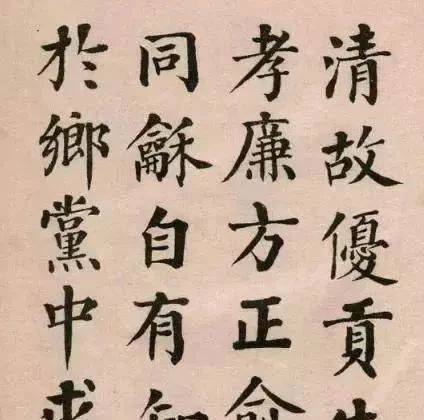 清故優貢生
孝廉方正
同龢自有
於鄉黨中求